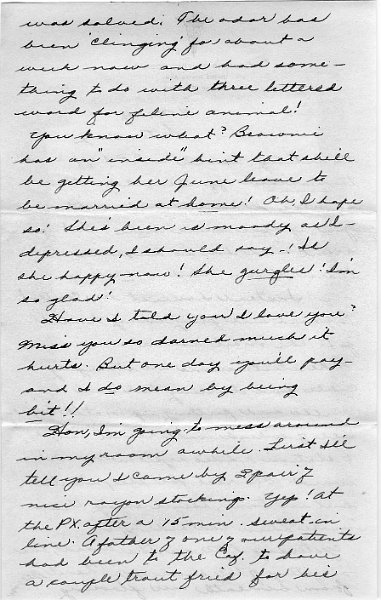 was solved. The odor has
been 'clinging' for about a
week now and had some-
thing to do with three lettered
word for feline animal!
You know what? Brownie
has an "inside" hint that she'll
be getting her June leave to
be married at home! Oh, I hope
so! She's been so moody as I-
depressed, I should say-! Is
she happy now! She gurgles! I'm
so glad!
Have I told you I love you?
Miss you so darned much it
hurts. But one day you'll pay-
and I do mean by being
bit!!
Hon, I'm going to mess around
in my room awhile. First I'll
tell you I came by 2 pair of
nice rayon stockings. Yep! At
the PX after a 15 min. sweat in
line. A father of one of our patients
had been to the to have
a couple trout fried for his